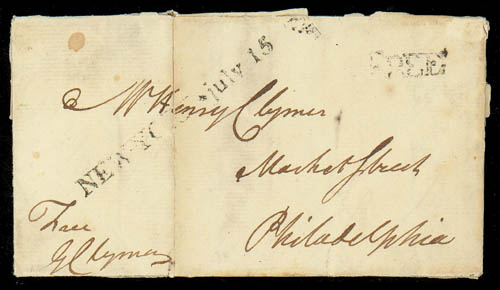 FREE
NEW-YORK*july 15
Mr Henry Clymer
Market Street
Philadelphia
Free
G Clymer